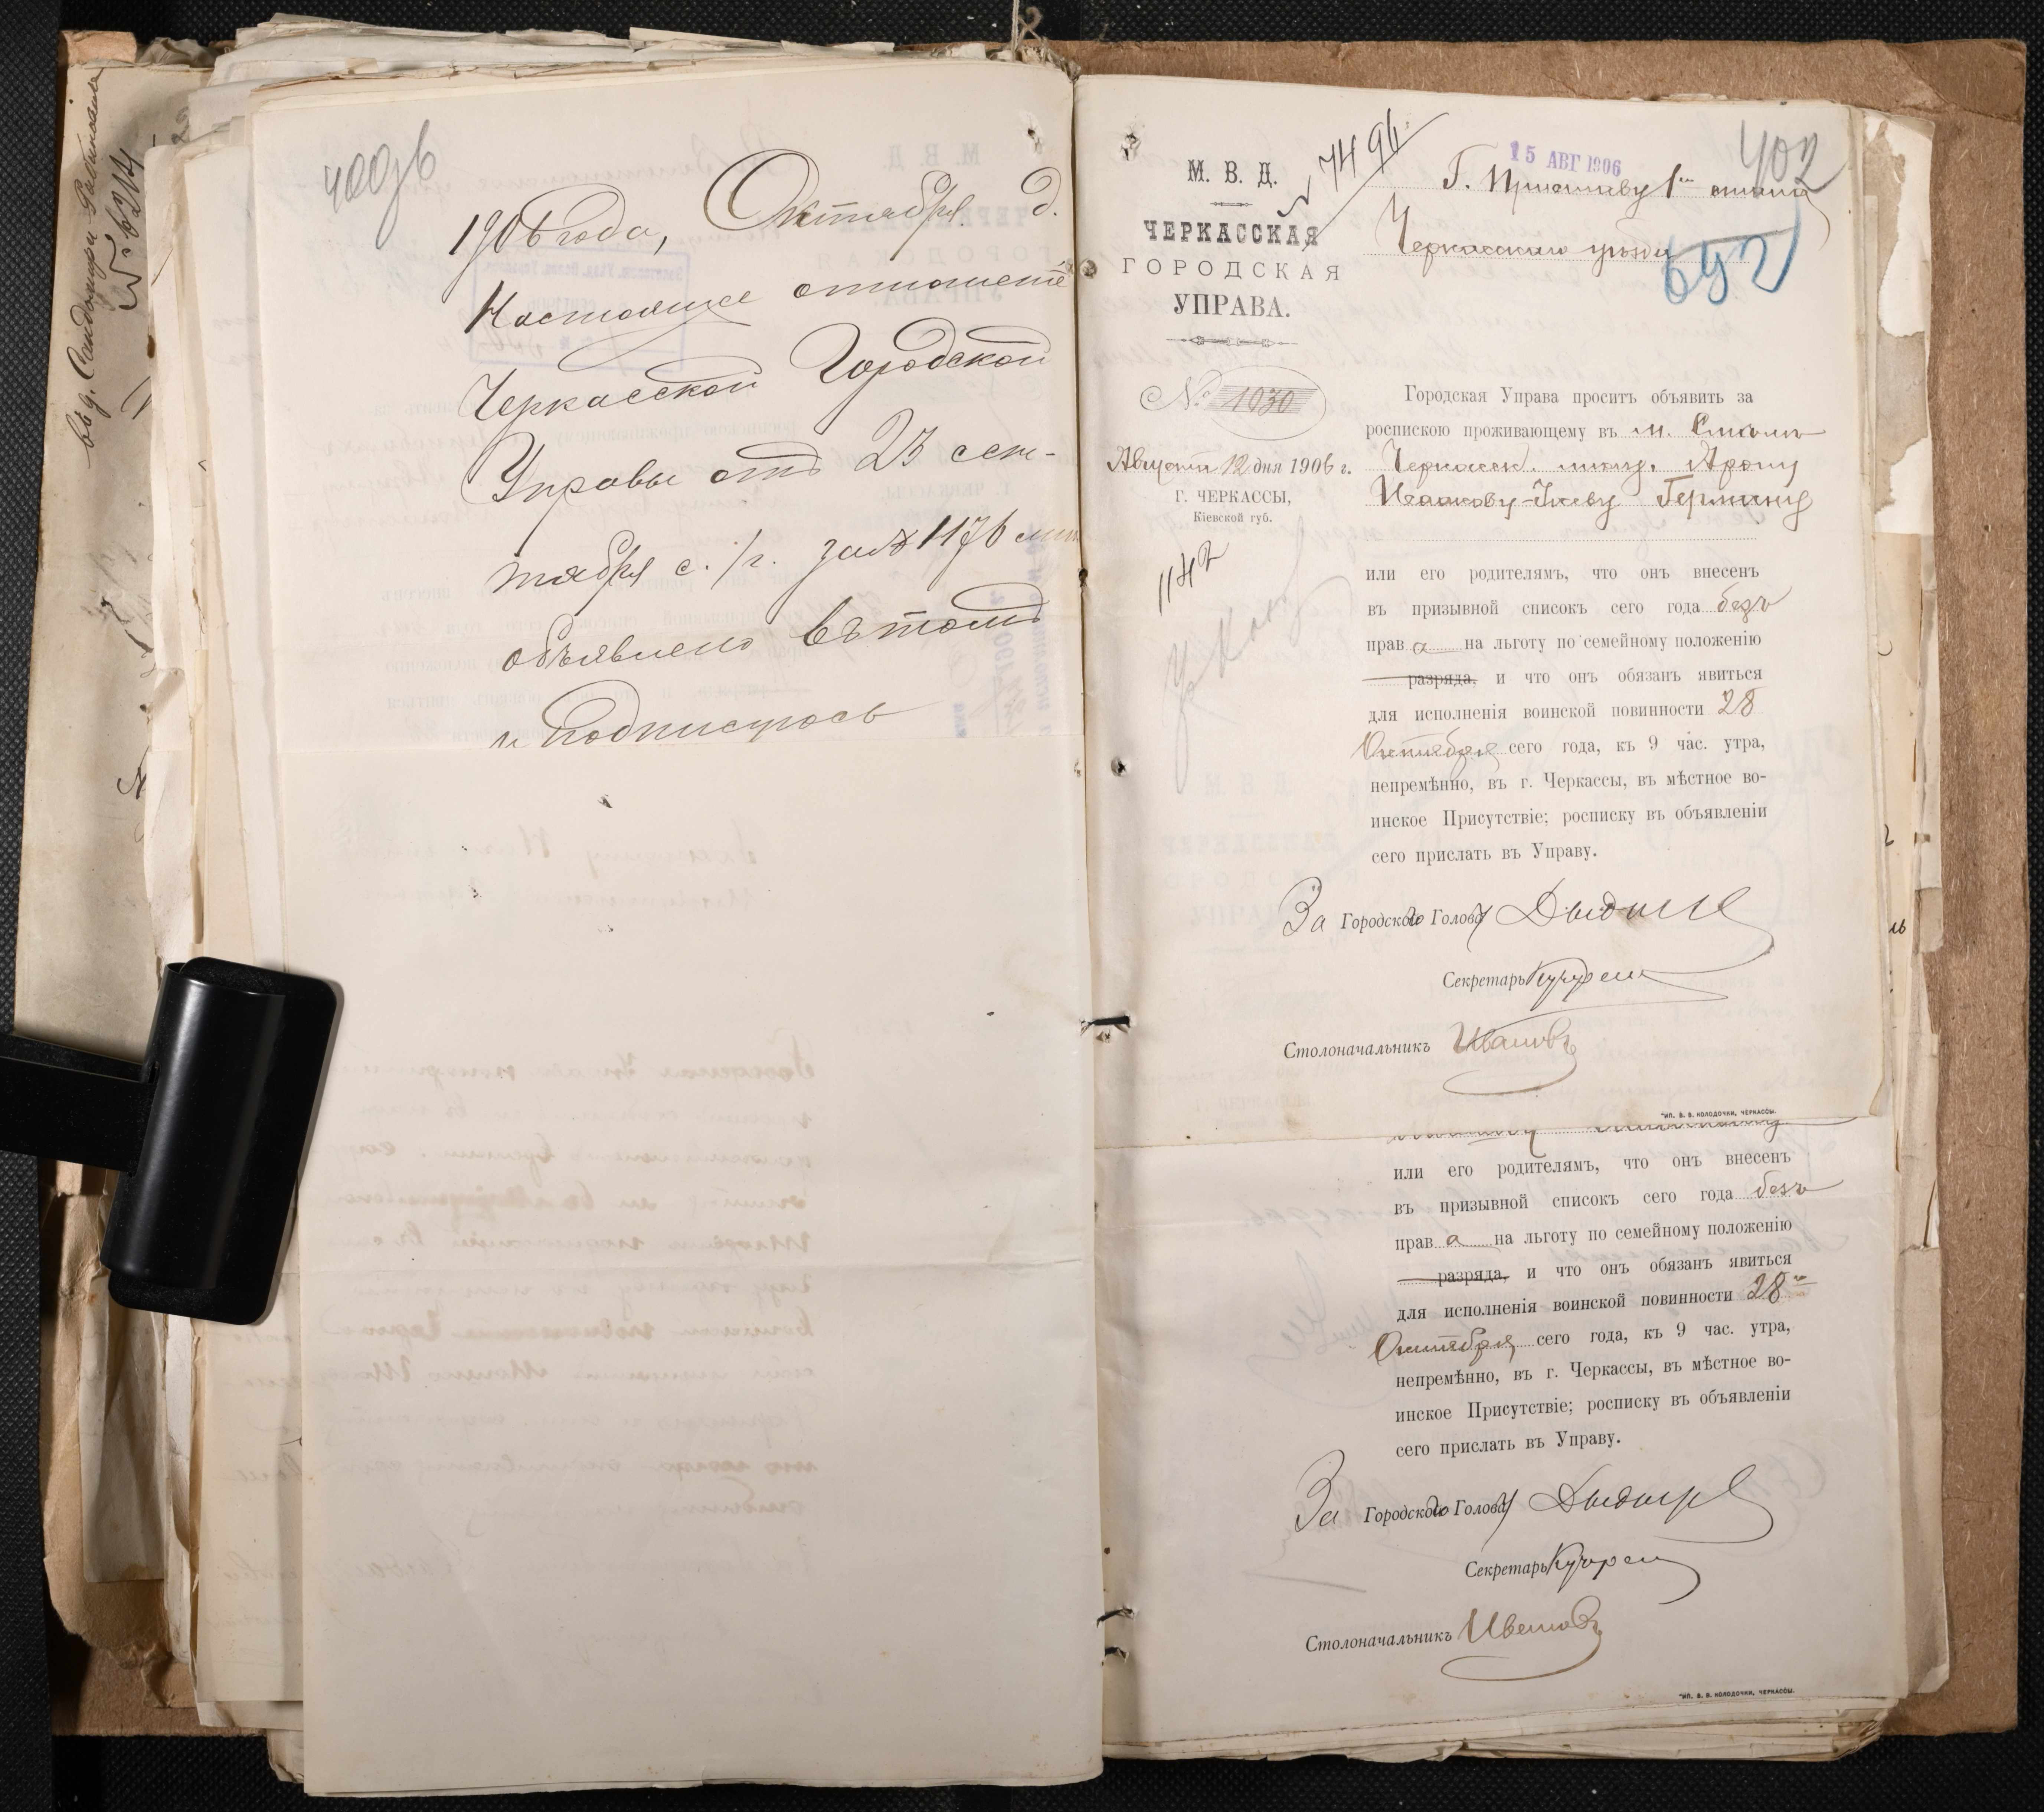 400об
1906 года, Октября д.
Настоящее отношение
Черкасской Городской
Управы отъ 23 сен-
тября с./г. за № 1176
объявлено въ томъ
и подписуюсь
402
15 АВГ 1906
№ 7496
М. В. Д.
ЧЕРКАССКАЯ
ГОРОДСКАЯ
УПРАВА.
Г. Приставу 1го стана
Черкасскаго уѣзда
692
№ 1030
Августа 12 дня 1906 г.
Г. ЧЕРКАССЫ,
Кіевской губ.
1142
Городская Управа проситъ объявить за
роспискою проживающему въ м. Смѣла
Черкасск. мѣщ. Арону
Герману
или его родителямъ, что онъ внесенъ
въ призывной списокъ сего года безъ
прав а на льготу по семейному положенію
разряда, и что онъ обязанъ явиться
для исполненія воинской повинности 28
Октября сего года, къ 9 час. утра,
непремѣнно, въ г. Черкассы, въ мѣстное во-
инское Присутствіе; росписку въ объявленіи
сего прислать въ Управу.
За Городского Голову
Секретарь
Столоначальникъ Ивановъ
ТИП. В. В. КОЛОДОЧКИ, ЧЕРКАССЫ.
или его родителямъ, что онъ внесенъ
въ призывной списокъ сего года безъ
прав а на льготу по семейному положенію
разряда, и что онъ обязанъ явиться
для исполненія воинской повинности 28го
Октября сего года, къ 9 час. утра,
непремѣнно, въ г. Черкассы, въ мѣстное во-
инское Присутствіе; росписку въ объявленіи
сего прислать въ Управу.
За Городского Голову
Секретарь
Столоначальникъ
ТИП. В. В. КОЛОДОЧКИ, ЧЕРКАССЫ.